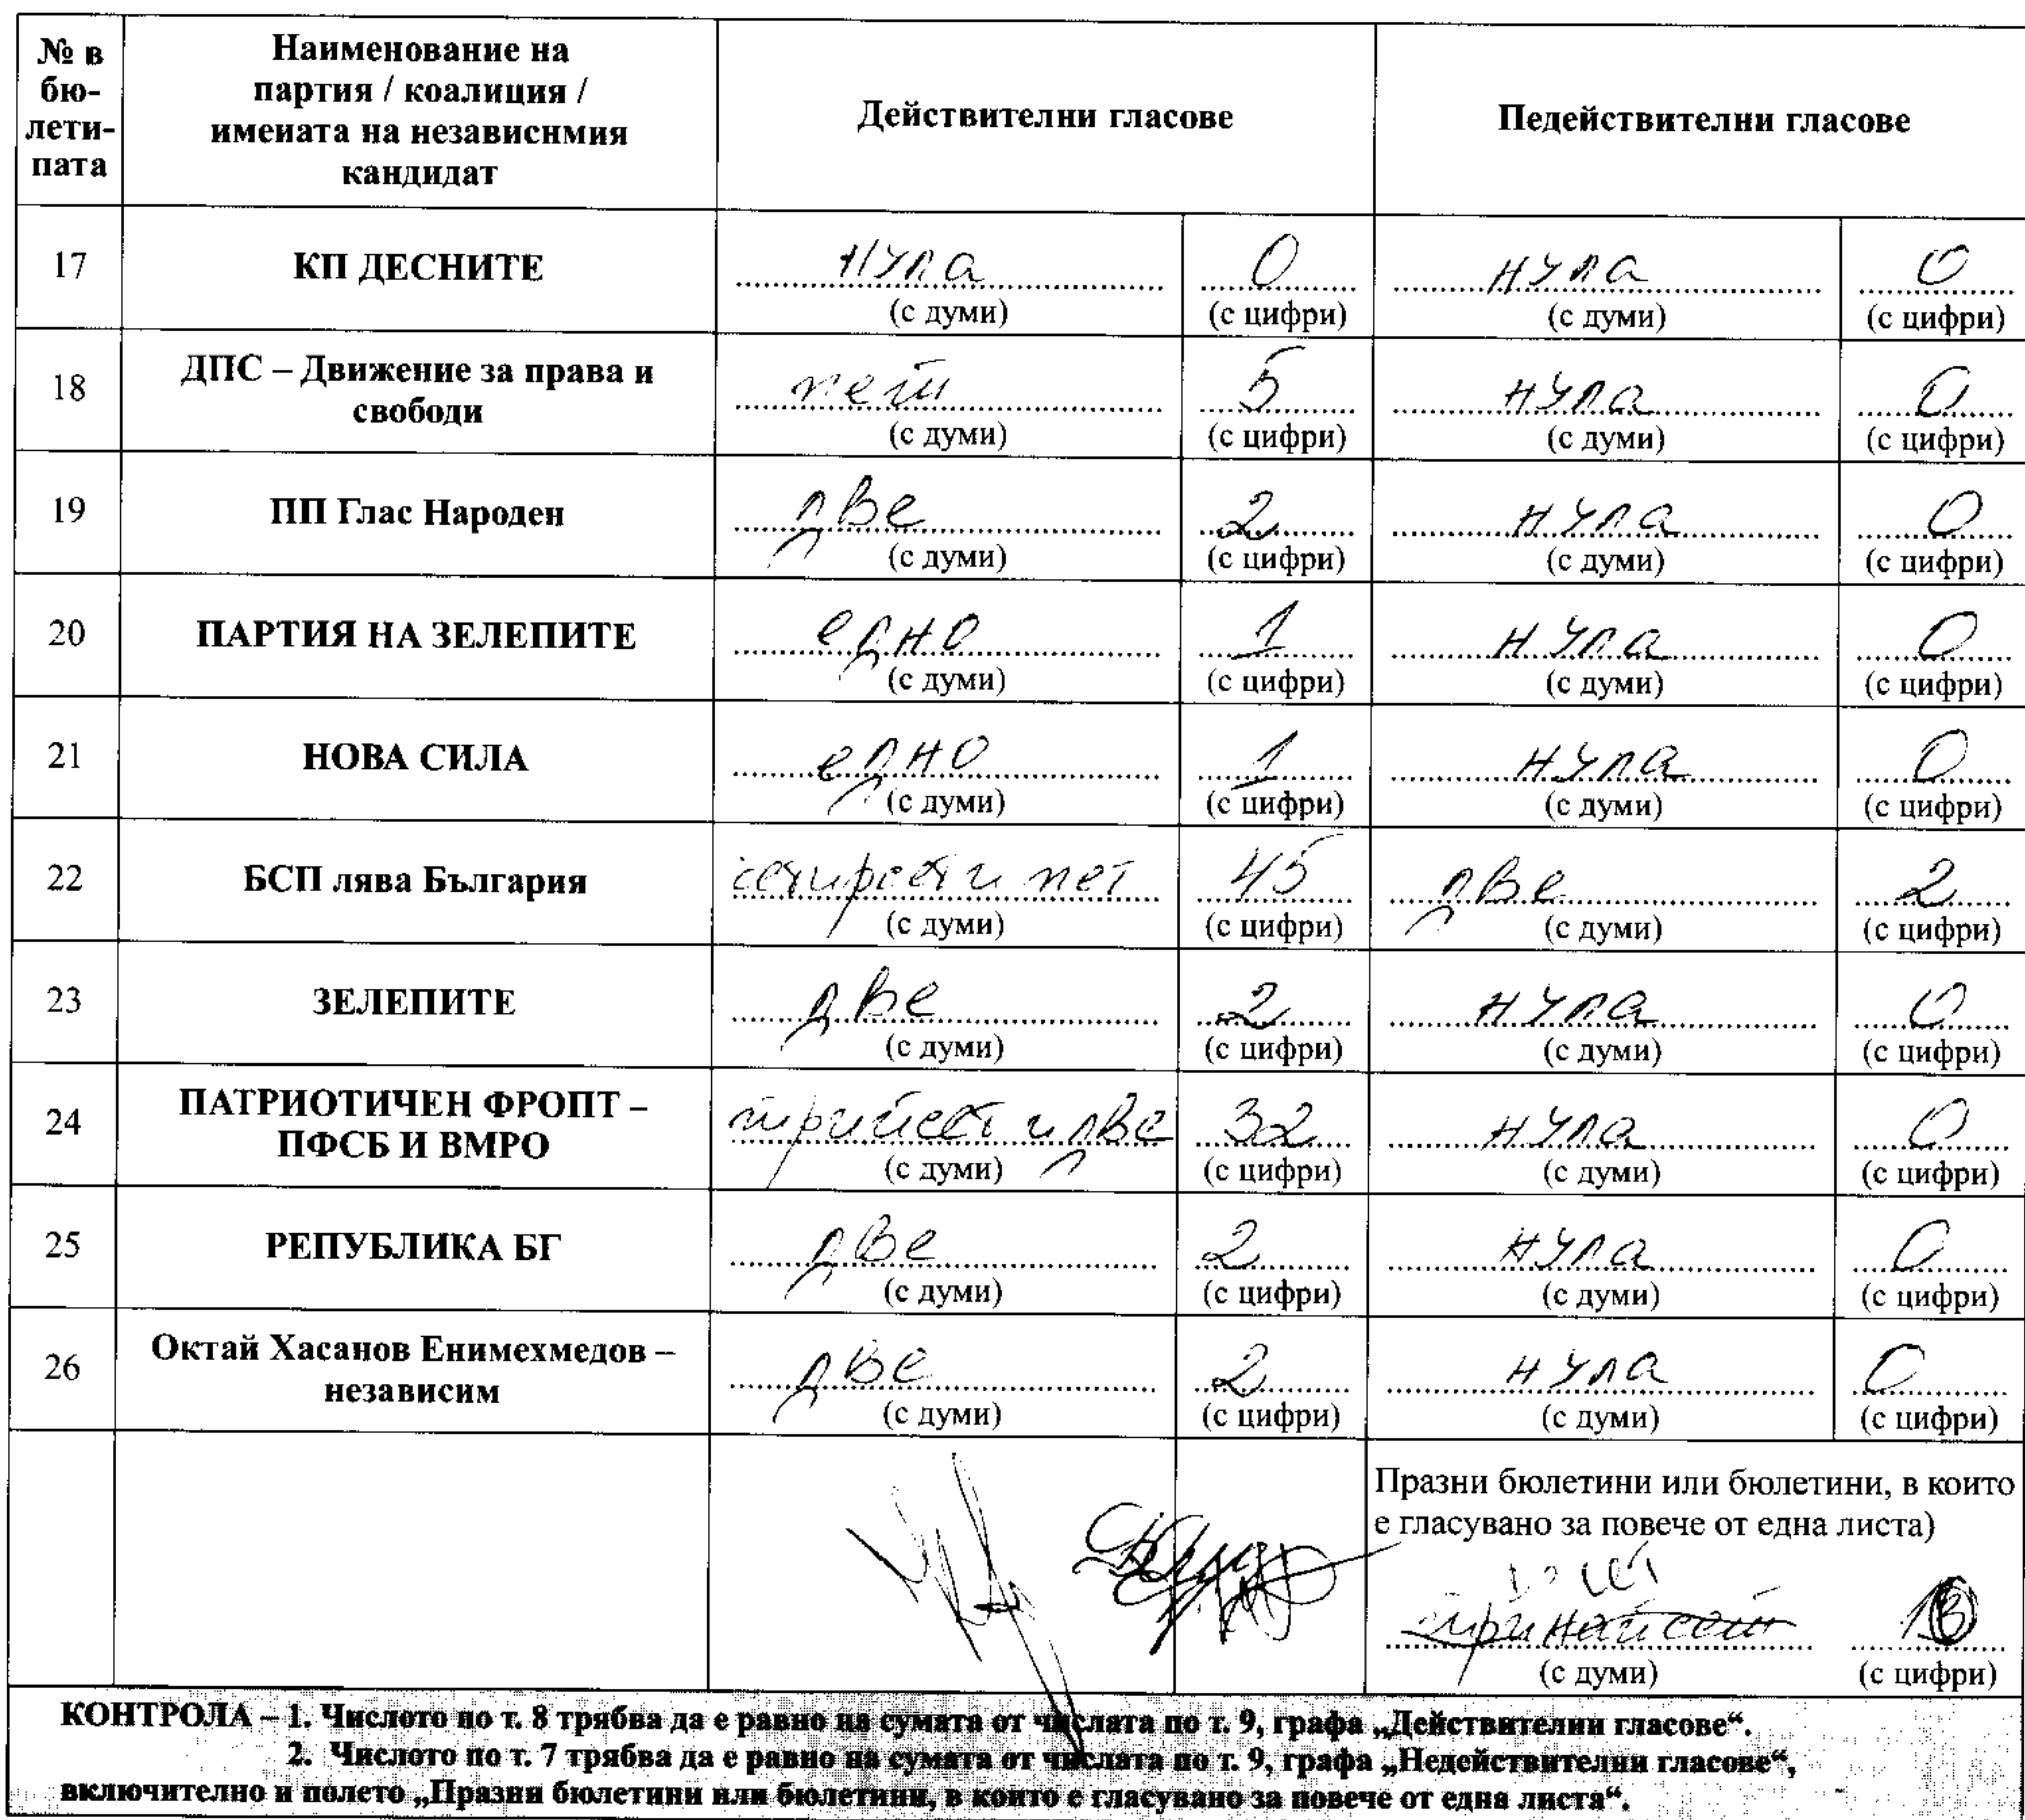 № в бю-лети-пата
Наименование на партия / коалиция / имеиата на независнмия кандидат
Действителни гласове
Педействителни гласове
17 КП ДЕСНИТЕ нула 0 нула 0
(с думи) (с цифри) (с думи) (с цифри)
18 ДПС – Движение за права и свободи пет 5 нула 0
(с думи) (с цифри) (с думи) (с цифри)
19 ПП Глас Народен две 2 нула 0
(с думи) (с цифри) (с думи) (с цифри)
20 ПАРТИЯ НА ЗЕЛЕПИТЕ едно 1 нула 0
(с думи) (с цифри) (с думи) (с цифри)
21 НОВА СИЛА едно 1 нула 0
(с думи) (с цифри) (с думи) (с цифри)
22 БСП лява България четирсет и пет 45 две 2
(с думи) (с цифри) (с думи) (с цифри)
23 ЗЕЛЕПИТЕ две 2 нула 0
(с думи) (с цифри) (с думи) (с цифри)
24 ПАТРИОТИЧЕН ФРОПТ – ПФСБ И ВМРО трийсет и две 32 нула 0
(с думи) (с цифри) (с думи) (с цифри)
25 РЕПУБЛИКА БГ две 2 нула 0
(с думи) (с цифри) (с думи) (с цифри)
26 Октай Хасанов Енимехмедов – независим две 2 нула 0
(с думи) (с цифри) (с думи) (с цифри)
Празни бюлетини или бюлетини, в които
е гласувано за повече от една листа)
тринайсет
(с думи) (с цифри)
КОНТРОЛА – 1. Числото по т. 8 трябва да е равно на сумата от числата по т. 9, графа „Действителни гласове“.
2. Числото по т. 7 трябва да е равно на сумата от числата по т. 9, графа „Недействителни гласове“,
включително и полето „Празни бюлетини или бюлетини, в които е гласувано за повече от една листа“.